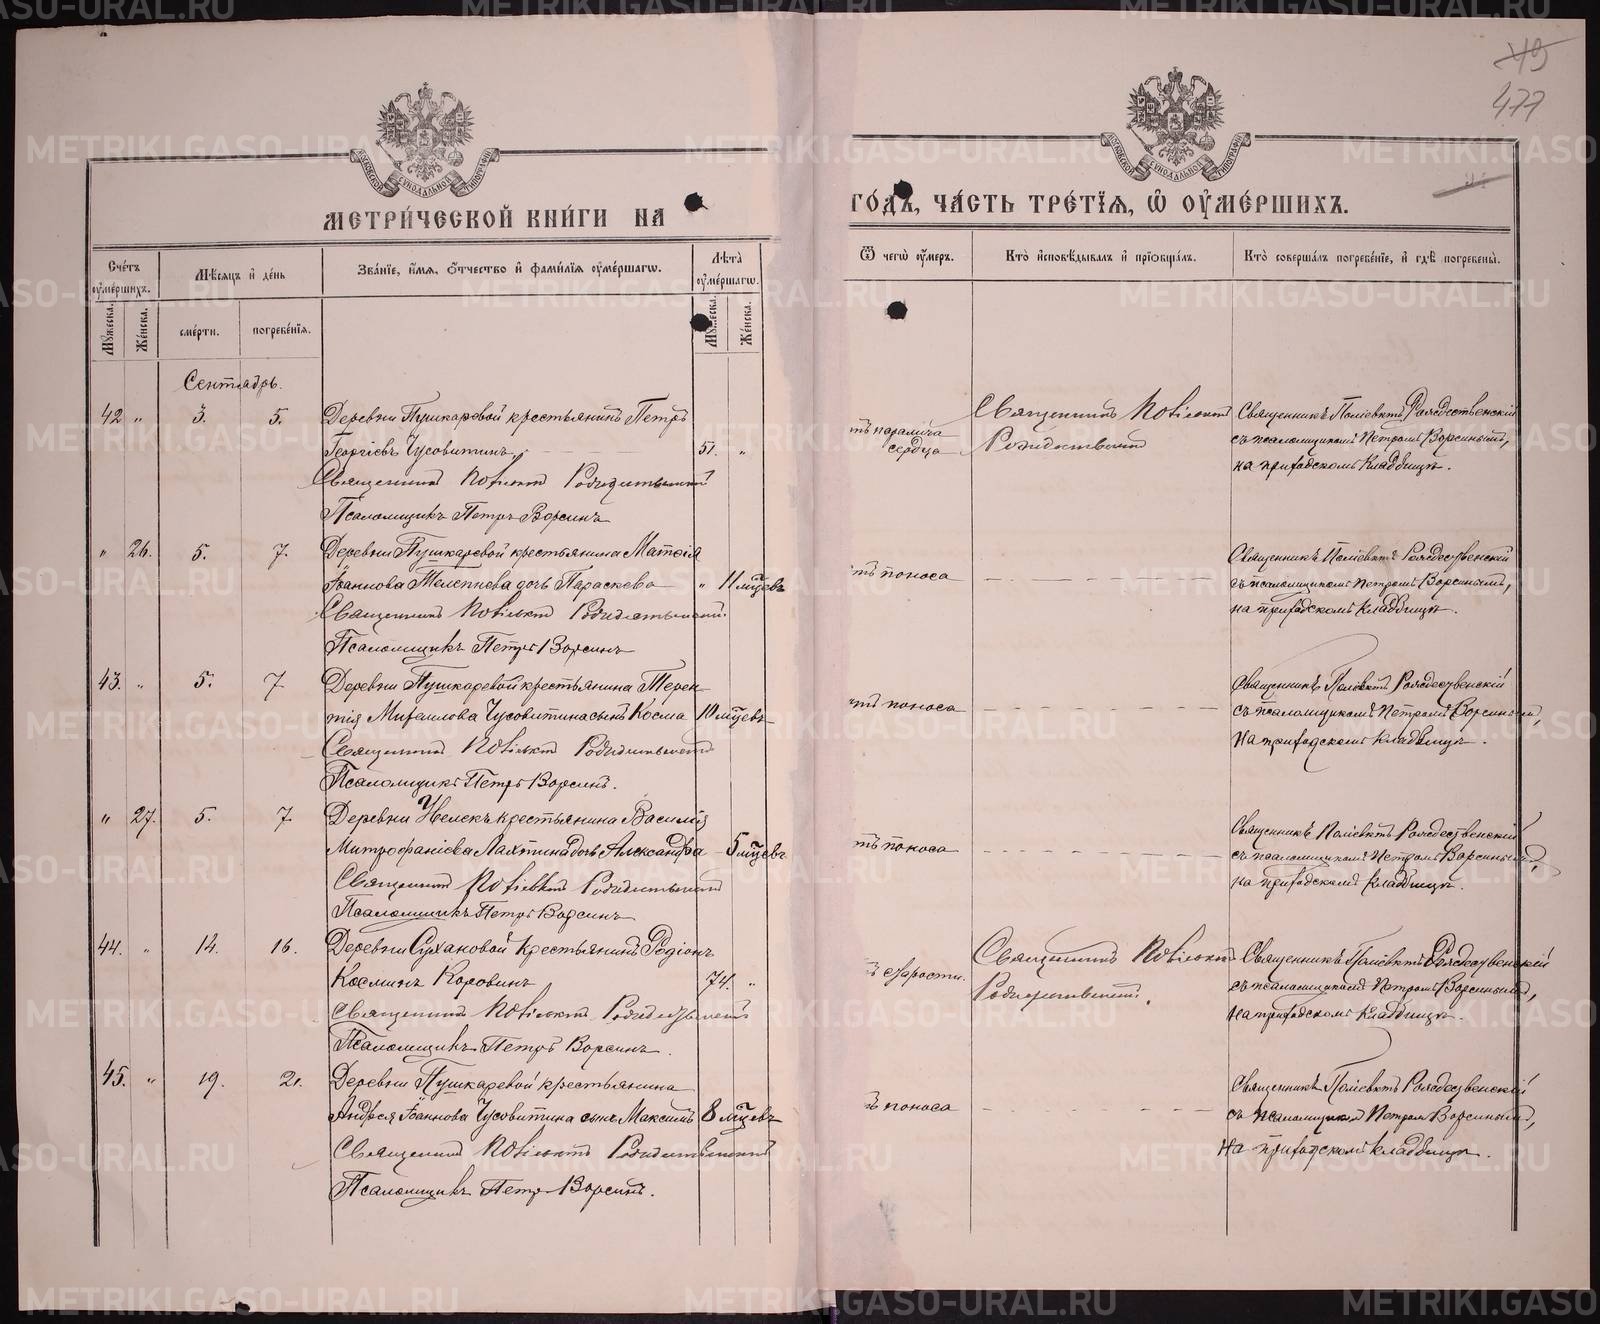 45
477
МЕТРИ́ЧЕСКОЙ КНИ́ГИ НА
ГО́ДЪ, ЧА́СТЬ ТРЕ́ТІѦ, Ѽ ОУ҆МЕ́РШИХЪ.
Сче́тъ оу҆ме́ршихъ.
Мꙋ́жеска.
Же́нска.
Мѣ́сѧцъ и҆ де́нь
сме́рти.
погребе́нїѧ.
Зва́нїе, и҆́мѧ, ѻ҆́тчество и҆ фами́лїѧ оу҆ме́ршагѡ.
Лѣ́та оу҆ме́ршагѡ.
Же́нска.
Ѿ чегѡ̀ оу҆́меръ.
Кто̀ и҆сповѣ́дывалъ и҆ прїѡбща́лъ.
Кто̀ соверша́лъ погребе́нїе, и҆ гдѣ̀ погребены̀.
Сентябрь.
42 „ 3. 5. Деревни Пушкаревой крестьянинъ Петръ
Георгіевъ Чусовитинъ. 51. „
Священникъ Поліевктъ Рождественскій
Псаломщикъ Петръ Ворсинъ
тъ паралича
сердца
Священникъ Поліевктъ
Рождественскій
Священникъ Поліевктъ Рождественскій
съ псаломщикомъ Петромъ Ворсинымъ,
на приходскомъ кладбищѣ.
„ 26. 5. 7. Деревни Пушкаревой крестьянина Матѳія
Іоаннова Телепнева дочь Параскева „ 11 мцевъ
Священникъ Поліевктъ Рождественскій
Псаломщикъ Петръ Ворсинъ
тъ поноса
Священникъ Поліевктъ Рождественскій
съ псаломщикомъ Петромъ Ворсинымъ,
на приходскомъ кладбищѣ.
43. „ 5. 7. Деревни Пушкаревой крестьянина Терен-
тія Михаилова Чусовитина сынъ Косма 10 мцевъ
Священникъ Поліевктъ Рождественскій
Псаломщикъ Петръ Ворсинъ.
тъ поноса
Священникъ Поліевктъ Рождественскій
съ псаломщикомъ Петромъ Ворсинымъ,
на приходскомъ кладбищѣ.
„ 27. 5. 7. Деревни крестьянина Василія
Митрофаніева Лахтина дочь Александра 5 мцевъ
Священникъ Поліевктъ Рождественскій
Псаломщикъ Петръ Ворсинъ
тъ поноса
Священникъ Поліевктъ Рождественскій
съ псаломщикомъ Петромъ Ворсинымъ,
на приходскомъ кладбищѣ.
44. „ 14. 16. Деревни Сухановой крестьянинъ Родіонъ
Косминъ Коровинъ 74. „
Священникъ Поліевктъ Рождественскій
Псаломщикъ Петръ Ворсинъ.
ъ старости.
Священникъ Поліевктъ
Рождественскій.
Священникъ Поліевктъ Рождественскій
съ псаломщикомъ Петромъ Ворсинымъ,
на приходскомъ кладбищѣ.
45. „ 19. 21. Деревни Пушкаревой крестьянина
Андрея Іоаннова Чусовитина сынъ Максимъ 8 мцевъ
Священникъ Поліевктъ Рождественскій
Псаломщикъ Петръ Ворсинъ.
ъ поноса
Священникъ Поліевктъ Рождественскій
съ псаломщикомъ Петромъ Ворсинымъ,
на приходскомъ кладбищѣ.
METRIKI.GASO-URAL.RU